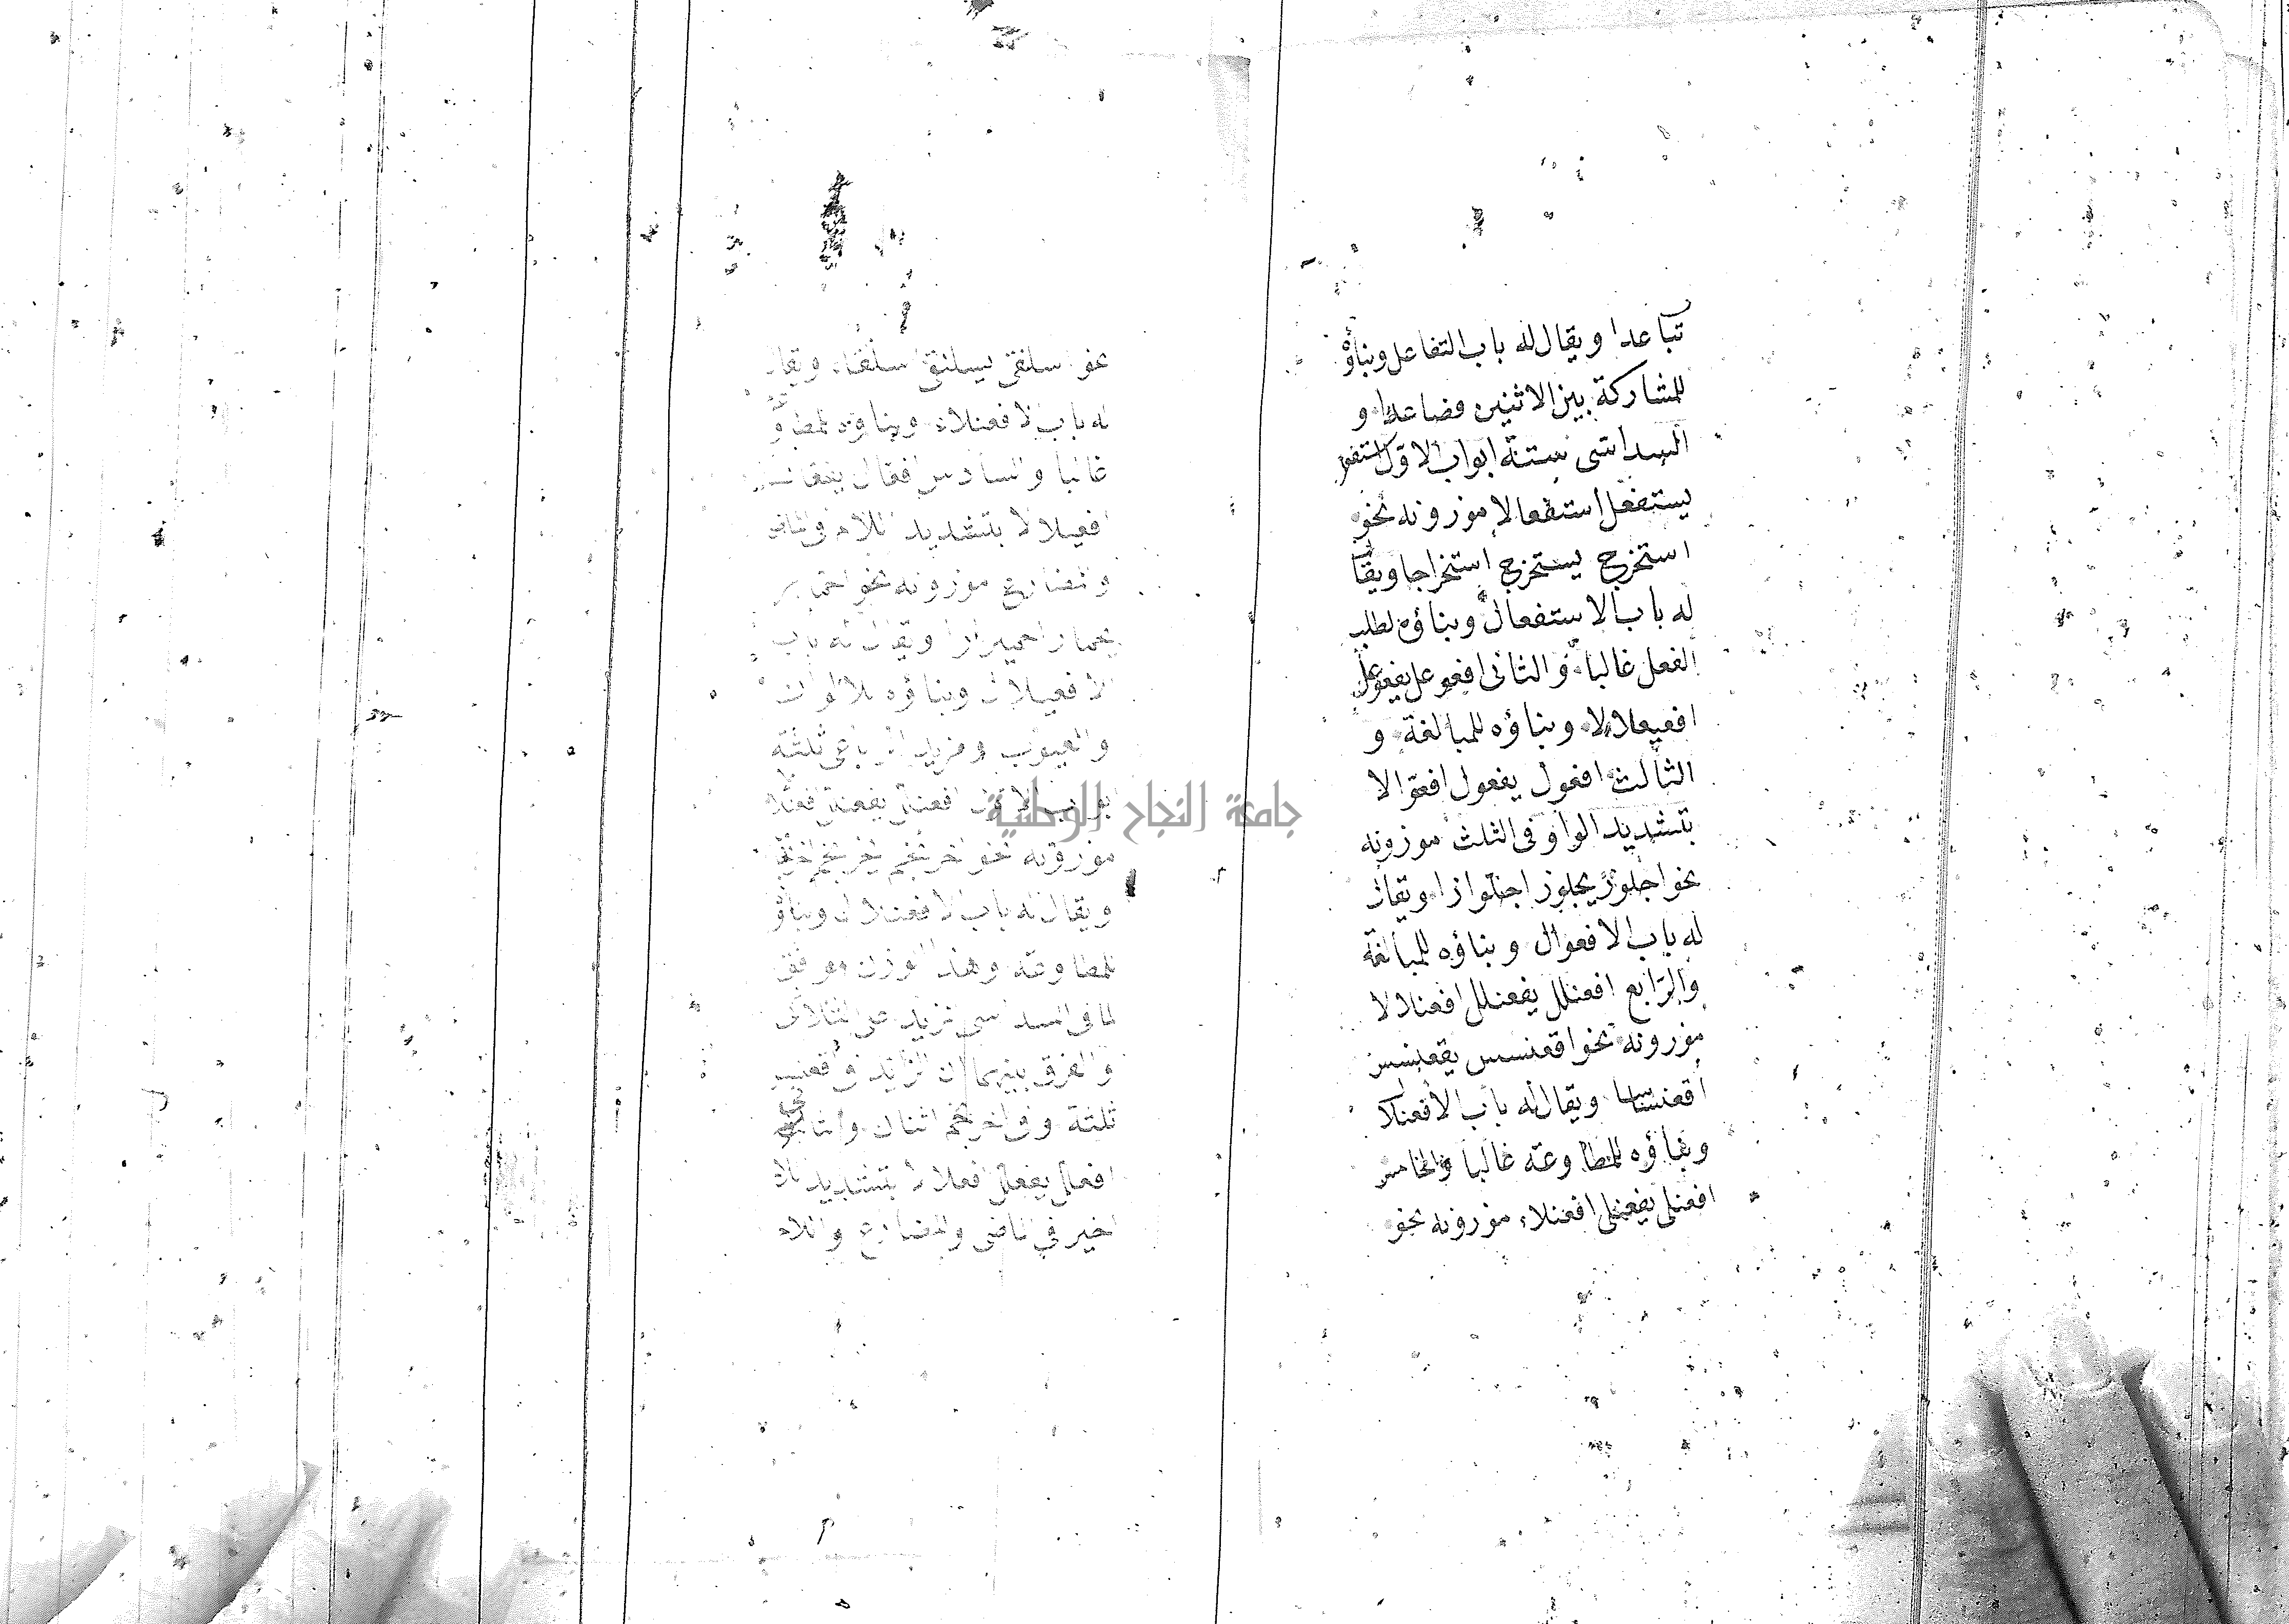 تباعدا ويقال له باب التفاعل وبناؤه
للمشاركة بين الاثنين فصاعدا و
السداسى ستة ابواب الاول استفعل
يستفعل استفعالا موزونه نحو
استخرج يستخرج استخراجا ويقال
له باب الاستفعال وبناؤه لطلب
الفعل غالبا والثانى افعوعل يفعوعل
افعيعالا وبناؤه للمبالغة و
الثالث افعول يفعول افعوالا
بتشديد الواو فى الثلث موزونه
نحو اجلوز يجلوز اجلوازا ويقال
له باب الافعوال وبناؤه للمبالغة
والرابع افعنلل يفعنلل افعنلالا
موزونه نحو اقعنسس يقعنسس
اقعنساسا ويقال له باب الافعنلال
وبناؤه للمطاوعة غالبا والخامس
افعنلى يفعنلى افعنلاء موزونه نحو
نحو اسلنقى يسلنقى اسلنقاء ويقال
له باب الافعنلاء وبناؤه للمطاوعة
غالبا والسادس افعال يفعال
افعيلالا بتشديد اللام فى الماضى
والمضارع موزونه نحو احمار
يحمار احميرارا ويقال له باب
الافعيلال وبناؤه للالوان
والعيوب ومزيد الرباعى ثلثة
ابواب الاول افعنلل يفعنلل افعنلالا
موزونه نحو اخرنجم يخرنجم
ويقال له باب الافعنلال وبناؤه
للمطاوعة وهذا الوزن موافق
لما فى السداسى مزيد على الثلاثى
والفرق بينهما ان الزائد فى اقعنسس
ثلثة وفى اخرنجم اثنان والثانى
افعلل يفعلل افعلالا بتشديد لام
اخير فى الماضى والمضارع واللام
جامعة النجاح الوطنية